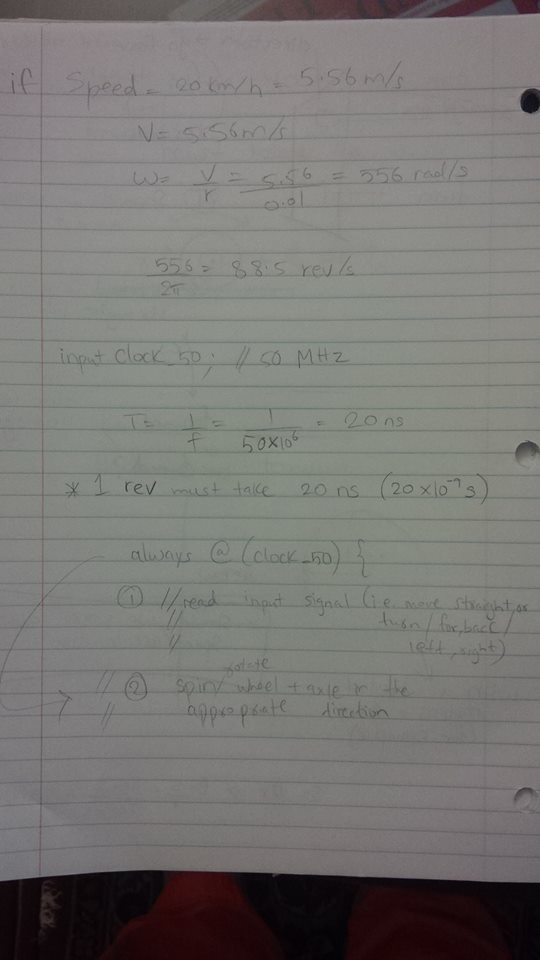 if Speed = 20 km/h = 5.56 m/s
V = 5.56 m/s
W = V/r = 5.56/0.01 = 556 rad/s
556/2π = 88.5 rev/s
input Clock_50; // 50 MHz
T = 1/f = 1/50×10⁶ = 20 ns
* 1 rev must take 20 ns (20×10⁻⁹s)
always @ (clock_50) {
① // read input signal (i.e. move straight, or
// turn / for, back /
// left, right)
rotate
// ② spin/ wheel + axle in the
// appropriate direction